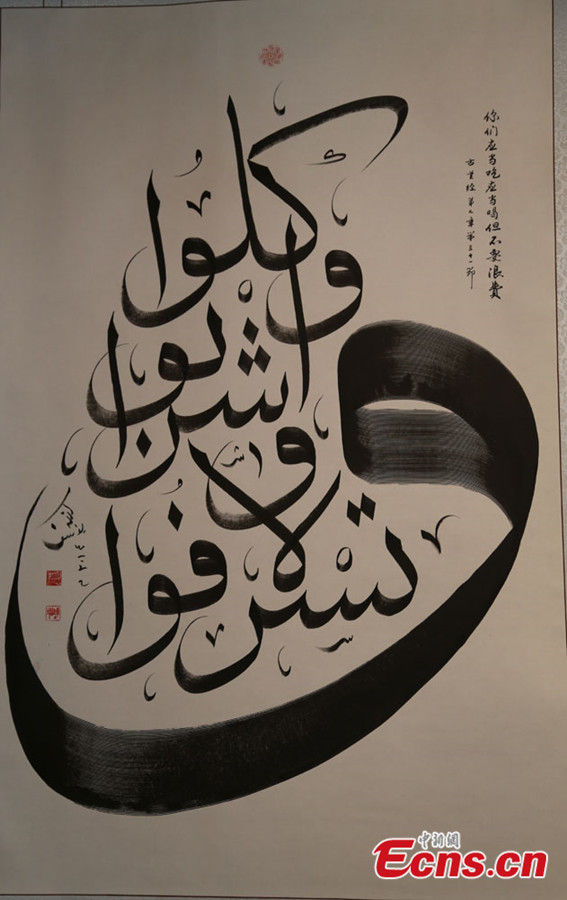 وكلوا
واشربوا
ولا
تسرفوا
你们应当吃应当喝但不要浪费
古兰经第七章第三十一节
中新網
Ecns.cn